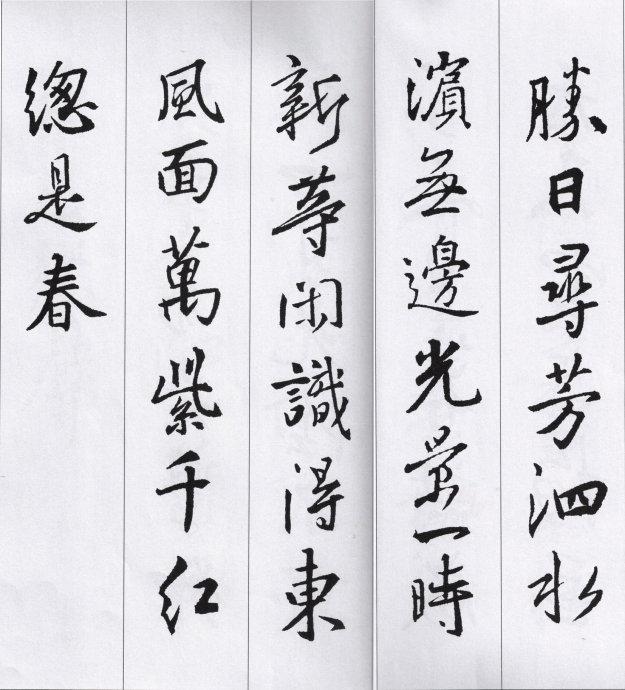 勝日尋芳泗水
濱無邊光景一時
新等閑識得東
風面萬紫千红
總是春